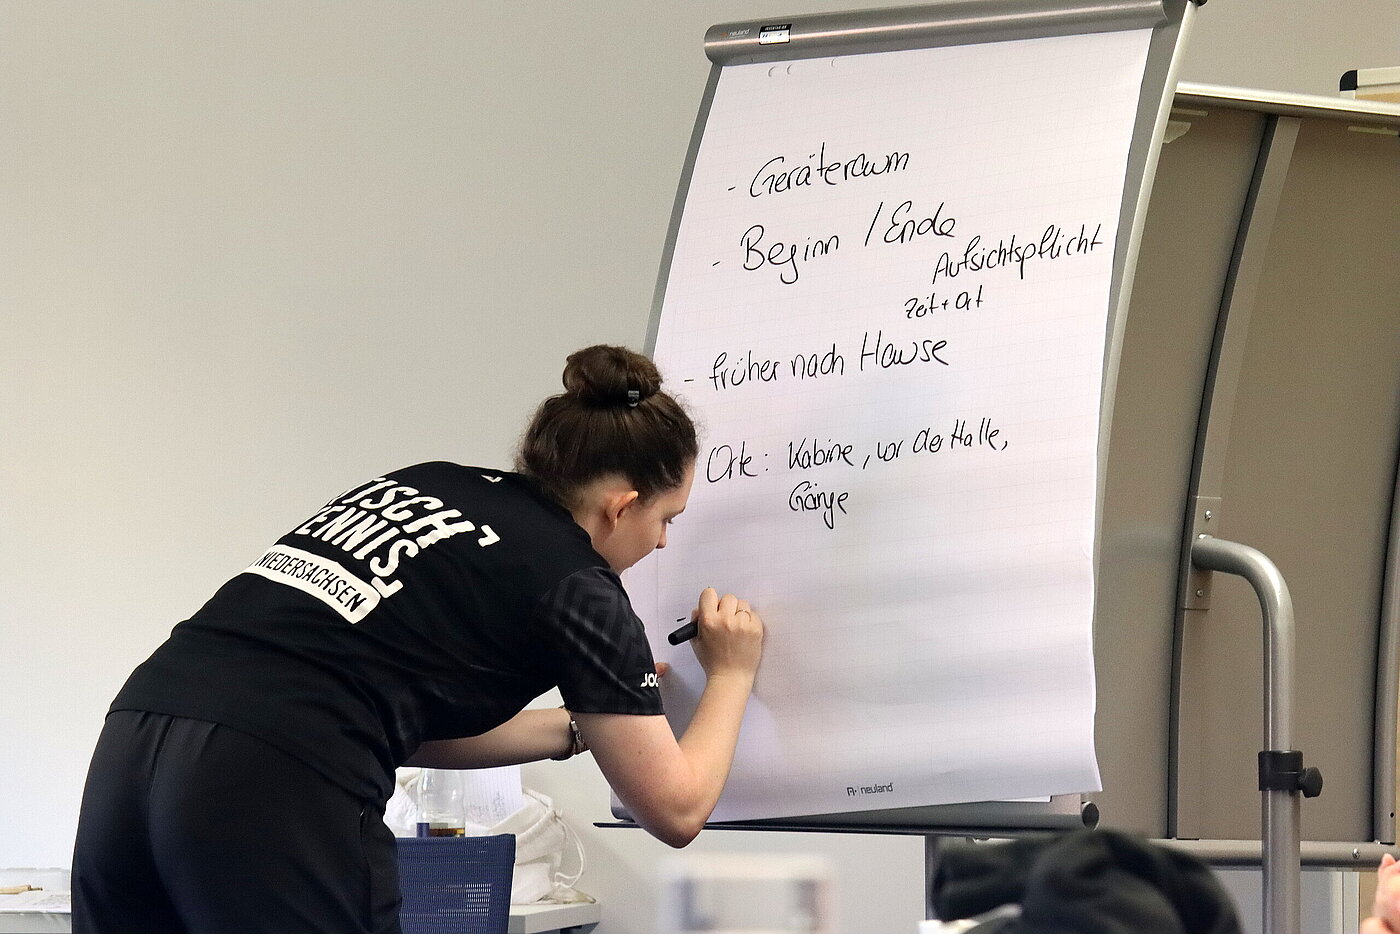 neuland
- Geräteraum
- Beginn / Ende
Aufsichtspflicht
Zeit + Ort
- früher nach Hause
Orte: Kabine, vor der Halle,
Gänge
-
TISCH
TENNIS
NIEDERSACHSEN
JO
neuland